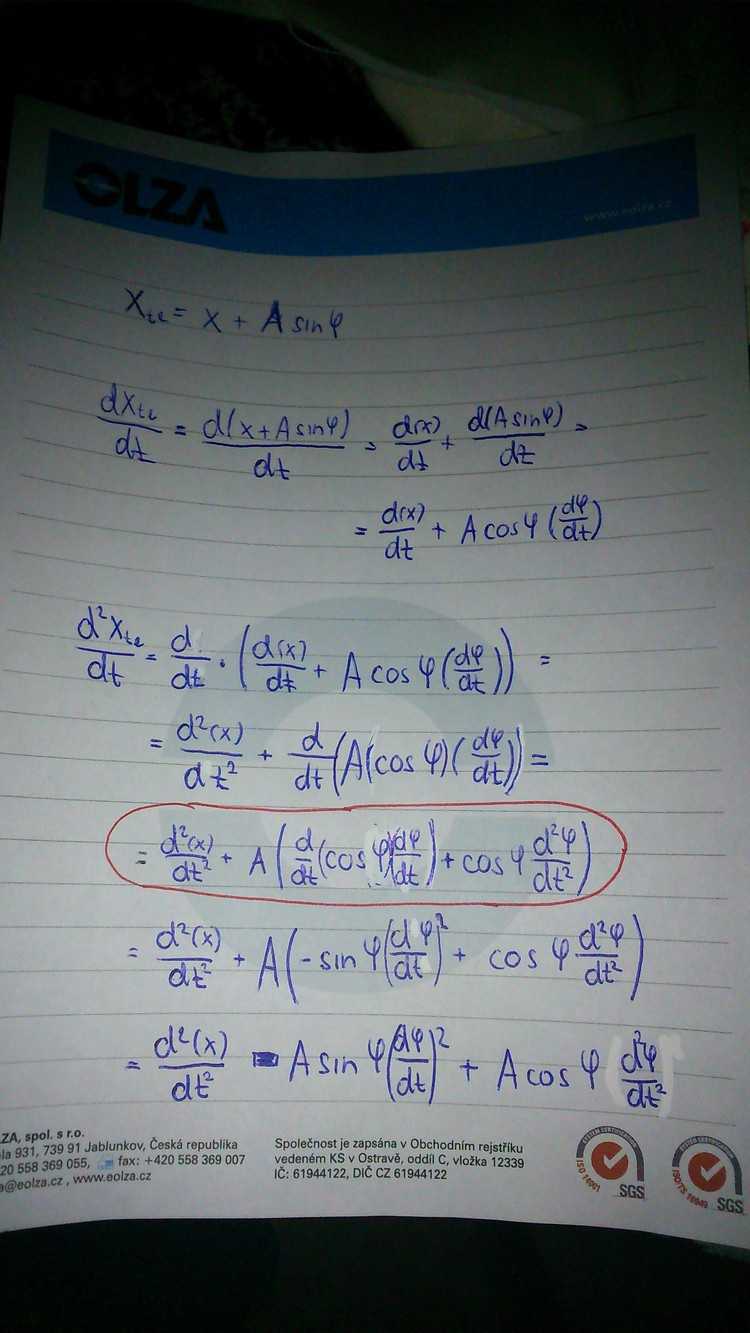 OLZA
www.eolza.cz
X_te = x + A sin φ
dX_te/dt = d(x + A sin φ)/dt = d(x)/dt + d(A sin φ)/dt =
= d(x)/dt + A cos φ (dφ/dt)
d²X_te/dt = d/dt · (d(x)/dt + A cos φ (dφ/dt)) =
= d²(x)/dt² + d/dt (A(cos φ)(dφ/dt)) =
= d²(x)/dt² + A(d/dt (cos φ)(dφ/dt) + cos φ d²φ/dt²)
= d²(x)/dt² + A(- sin φ (dφ/dt)² + cos φ d²φ/dt²)
= d²(x)/dt² - A sin φ (dφ/dt)² + A cos φ (d²φ/dt²)
ZA, spol. s r.o.
la 931, 739 91 Jablunkov, Česká republika
20 558 369 055, fax: +420 558 369 007
a@eolza.cz , www.eolza.cz
Společnost je zapsána v Obchodním rejstříku
vedeném KS v Ostravě, oddíl C, vložka 12339
IČ: 61944122, DIČ CZ 61944122
ISO 14001
SGS
ISO/TS 16949
SGS